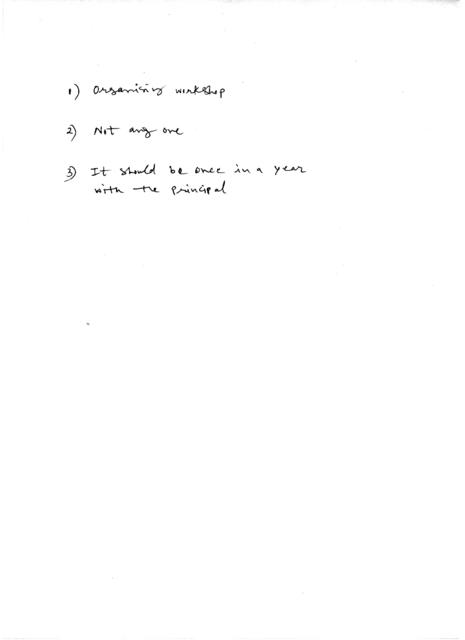 1) Organising workshop
2) Not any one
3) It should be once in a year
with the principal